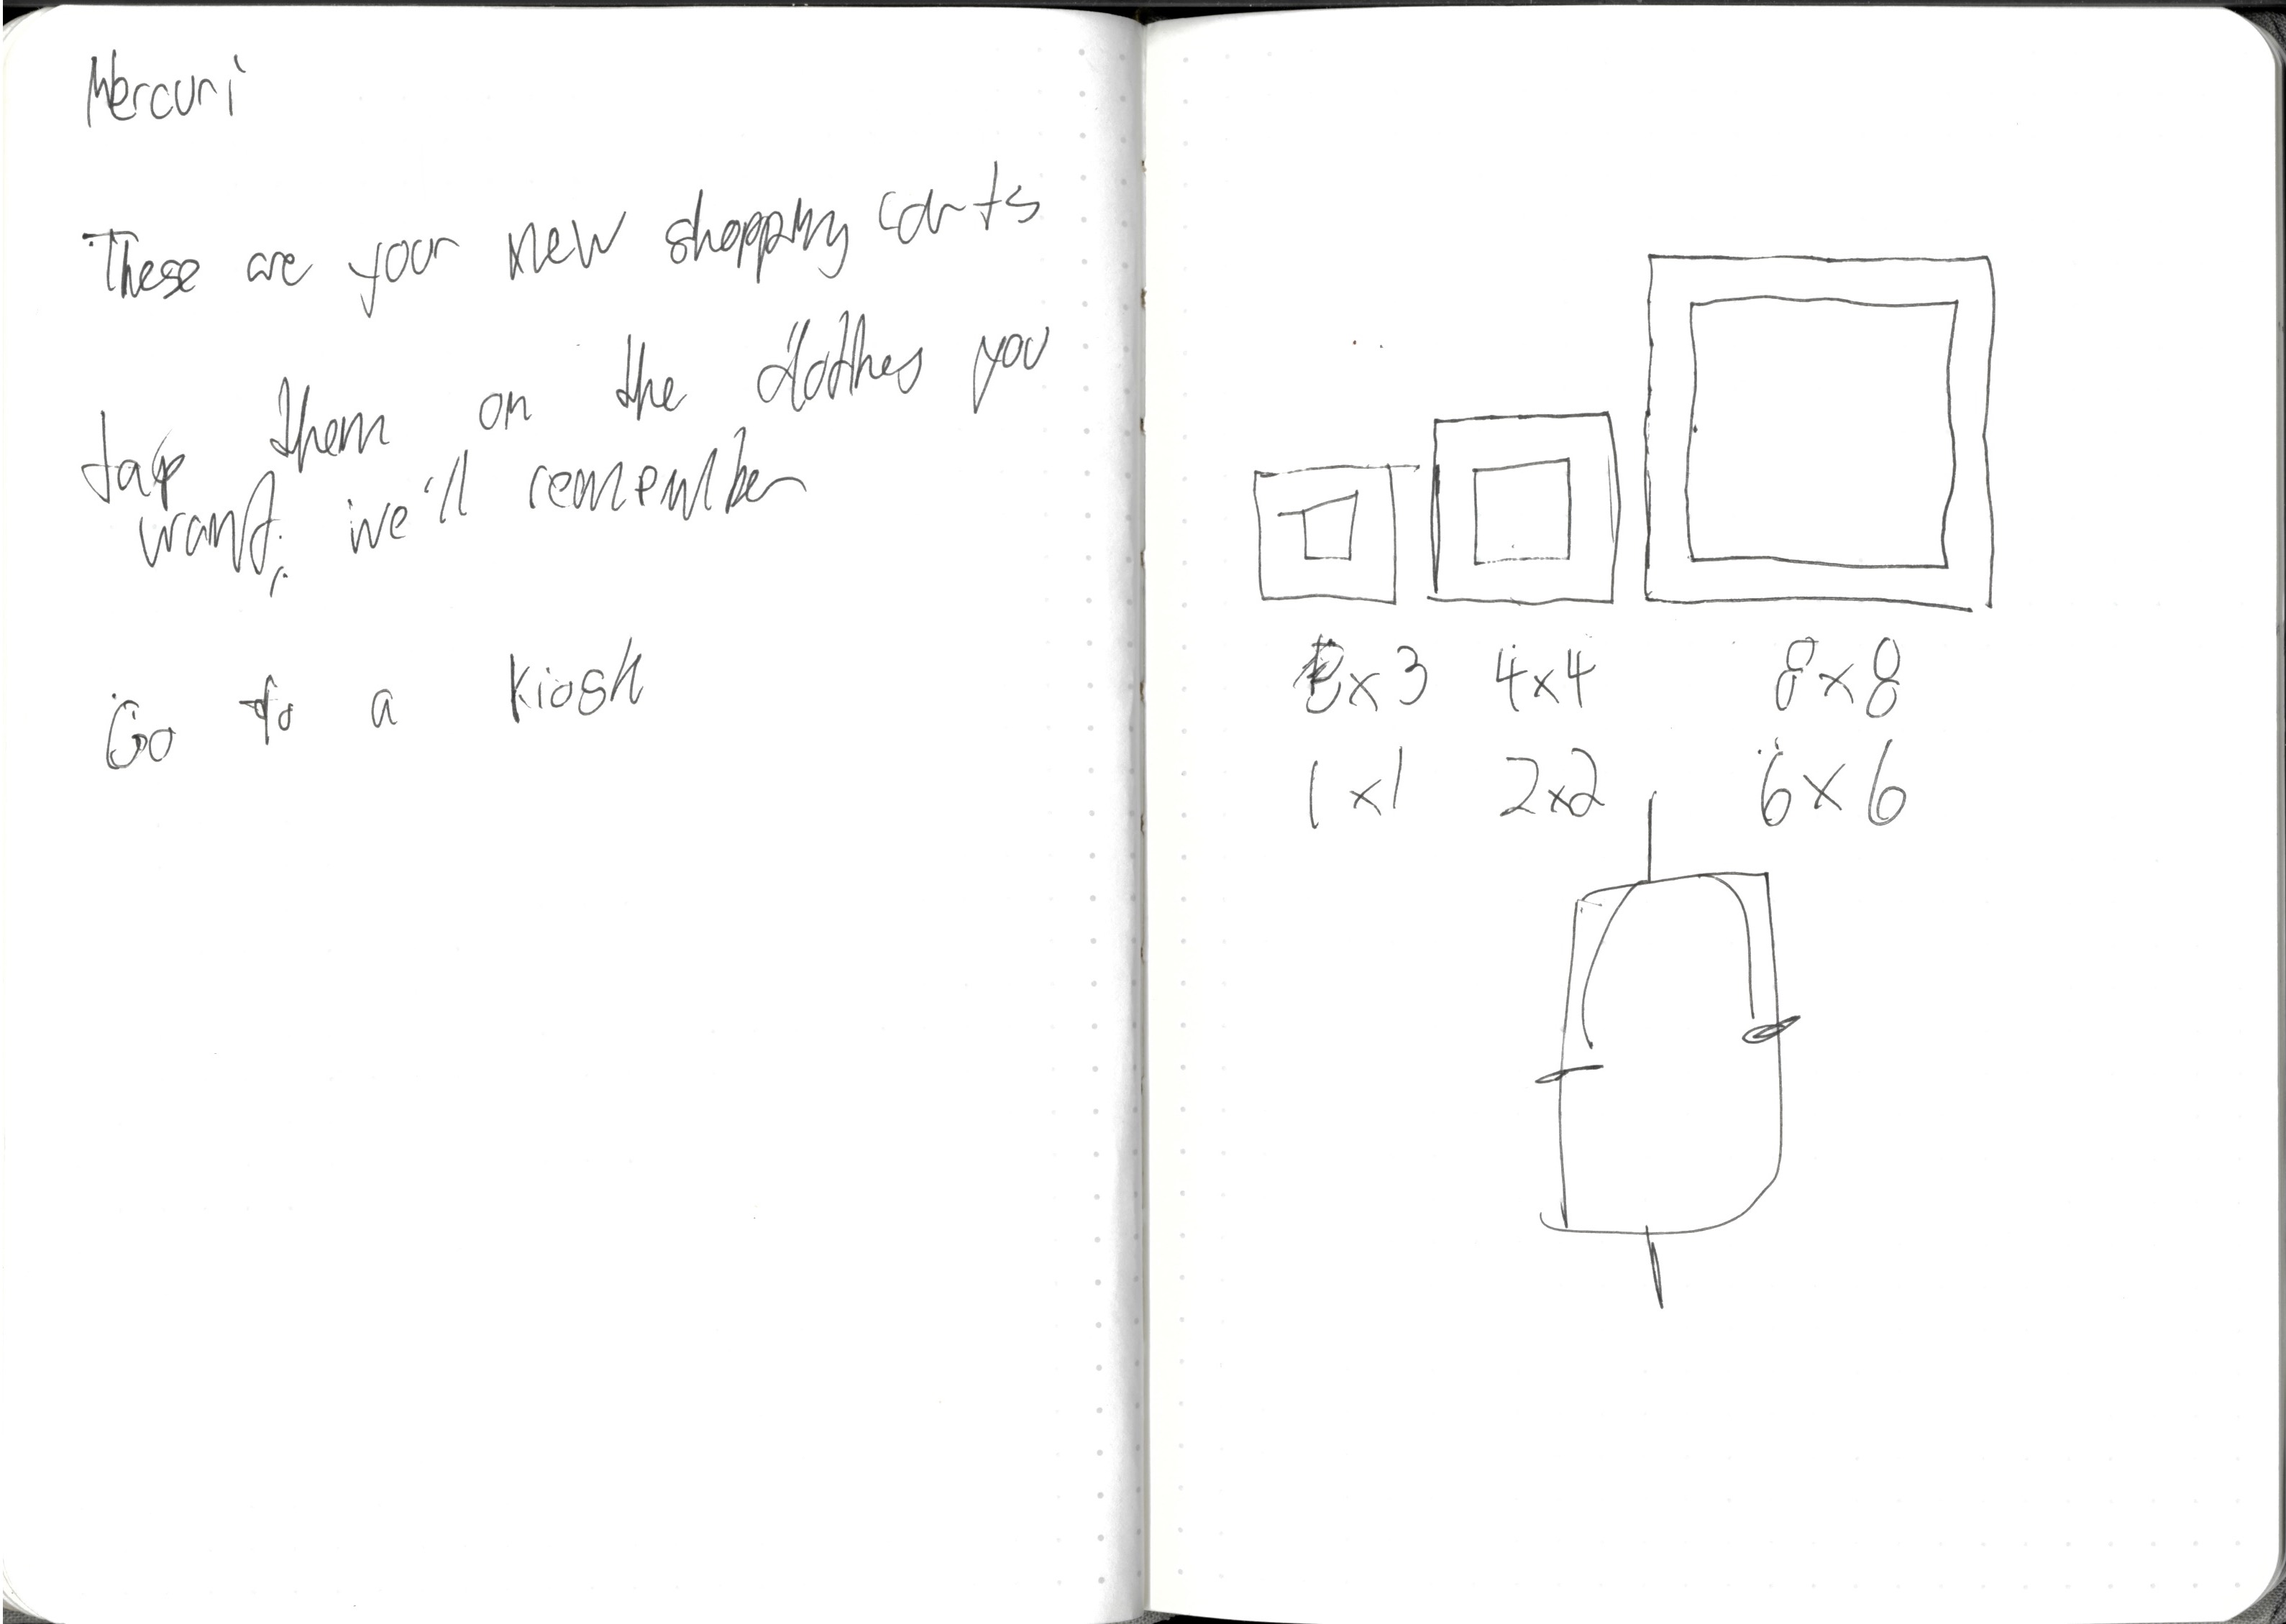 Mercuri
These are your new shopping carts
tap them on the clothes you
want, we'll remember
Go to a kiosk
3x3 4x4 8x8
1x1 2x2 6x6